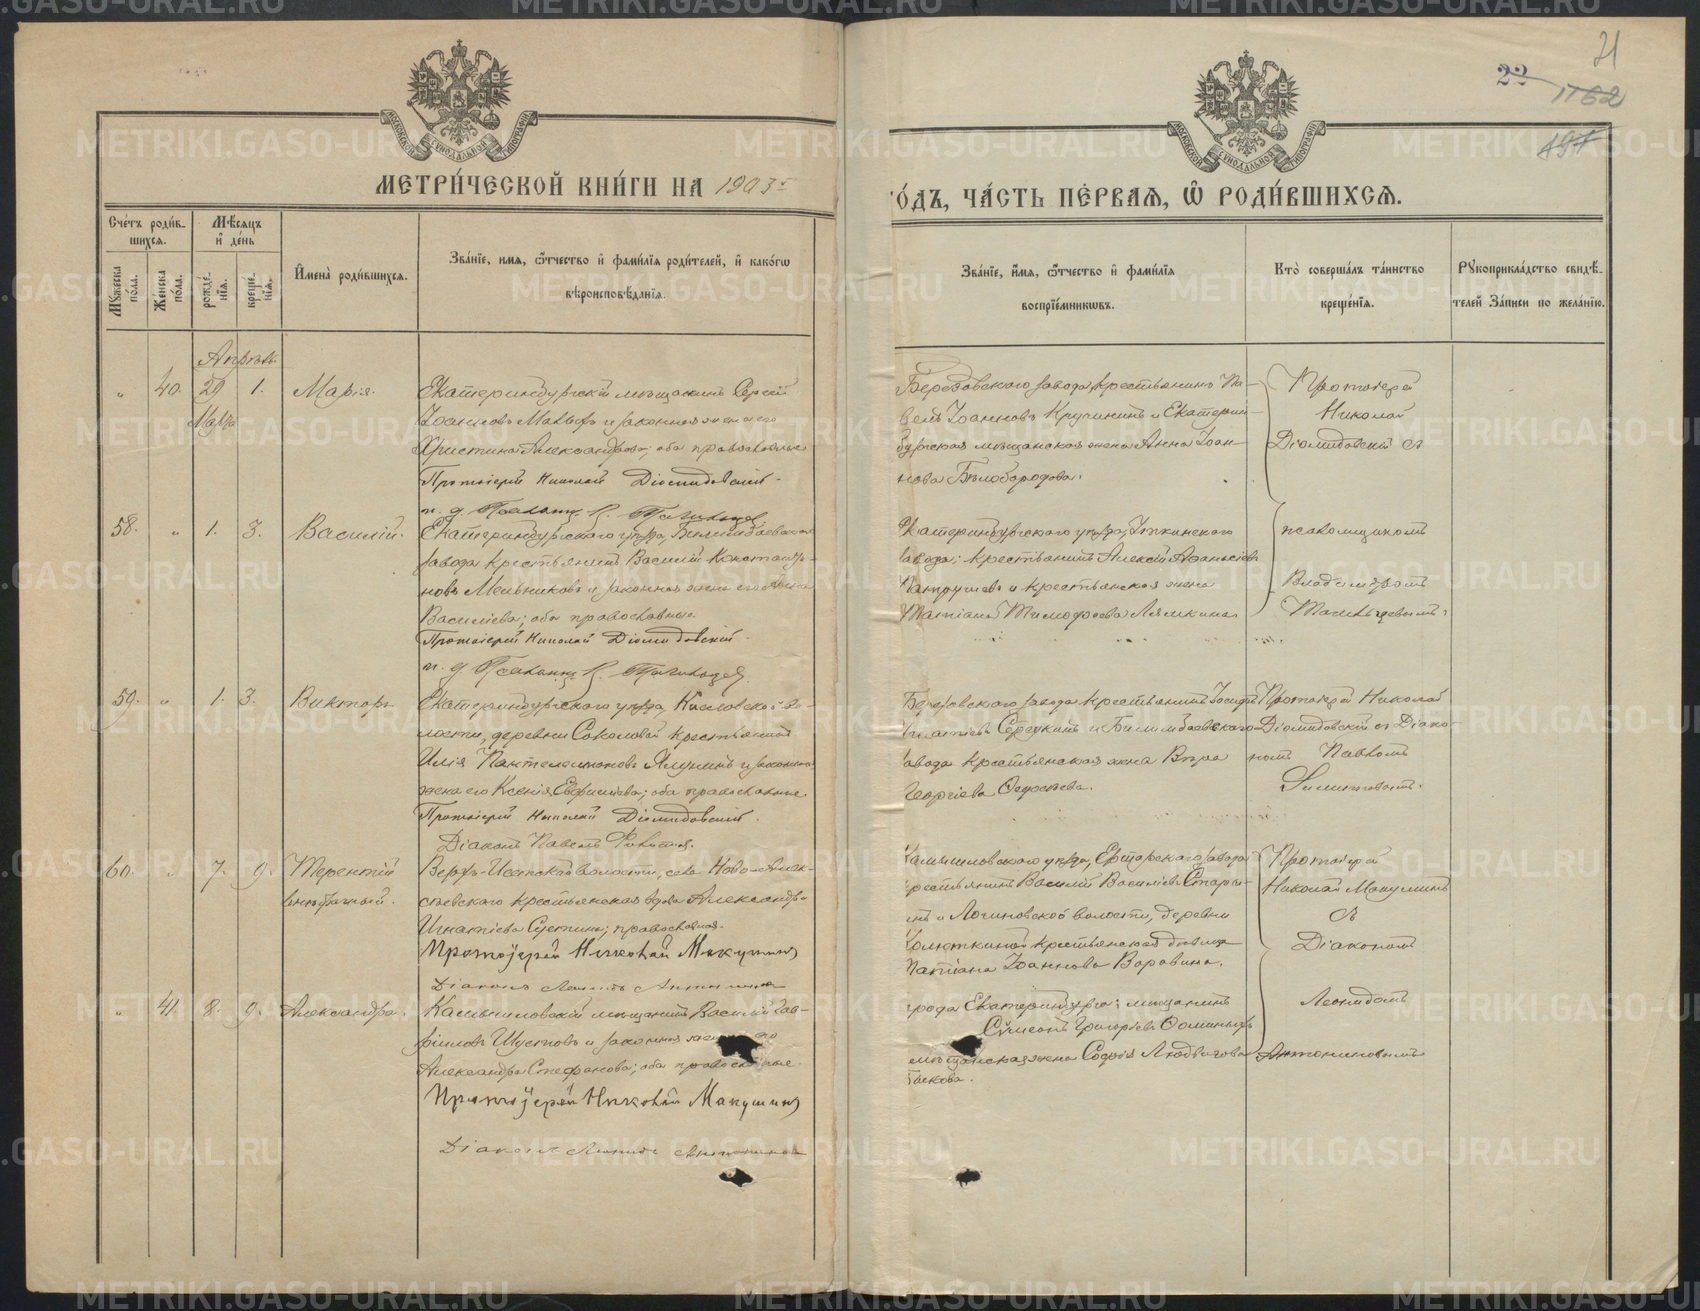 21
22
1162
197
МОСКОВСКОЙ СѴНОДАЛЬНОЙ ТИПОГРАФІИ
МОСКОВСКОЙ СѴНОДАЛЬНОЙ ТИПОГРАФІИ
МЕТРИ́ЧЕСКОЙ КНИ́ГИ НА 1903 г
ГО́ДЪ, ЧА́СТЬ ПЕ́РВАѦ, Ѡ҆ РОДИ́ВШИХСѦ.
Сче́тъ роди́в-
шихсѧ.
Мѣ́сѧцъ
и҆ де́нь
Мꙋ́жеска
по́ла.
Же́нска
по́ла.
рожде́-
нїѧ.
креще́-
нїѧ.
И҆мена̀ роди́вшихсѧ.
Зва́нїе, имѧ, ѻ҆́тчество и҆ фами́лїѧ роди́телей, и҆ како́гѡ
вѣроисповѣ́данїѧ.
Зва́нїе, и҆́мѧ, ѻ҆́тчество и҆ фами́лїѧ
воспрїе́мникѡвъ.
Кто̀ соверша́лъ та́инство
креще́нїѧ.
Рꙋкоприкла́дство свидѣ́-
телей за́писи по жела́нїю.
Апрѣль.
" 40. 29 1. Марія.
Марта
Екатеринбургскій мѣщанинъ Сергій
Іоанновъ и законная жена его
Христина Александрова; оба православные
Протоіерей Николай Діомидовскій.
Березовскаго завода, крестьянинъ Па-
велъ Іоанновъ Кручининъ и Екатерин-
бургская мѣщанская жена Анна Іоан-
нова Бѣлобородова.
Протоіерей
Николай
Діомидовскій съ
58. " 1. 3. Василій.
Екатеринбургскаго уѣзда, Билимбаевскаго
завода крестьянинъ Василій Константи-
новъ Мельниковъ и законная жена его
Василіева; оба православные
Протоіерей Николай Діомидовскій.
Екатеринбургскаго уѣзда, Уткинскаго
завода; крестьянинъ Алексій Аѳанасіевъ
и крестьянская жена
Татіана Тимоѳеева Лямкина.
псаломщикомъ
Владиміромъ
59. " 1. 3. Викторъ
Екатеринбургскаго уѣзда, Кисловской во-
лости, деревни Соколовой крестьянинъ
Илія Пантелеимоновъ Ялунинъ и законная
жена его Ксенія Евфиміева; оба православные.
Протоіерей Николай Діомидовскій.
Діаконъ Павелъ
Березовскаго завода крестьянинъ Іосифъ
Игнатіевъ и Билимбаевскаго
завода крестьянская жена Вѣра
Георгіева Ѳедосѣева.
Протоіерей Николай
Діомидовскій съ Діако-
номъ Павломъ
60. " 7. 9. Терентій
внѣбрачный.
Верхъ-Исетской волости, села Ново-Алек-
сѣевскаго крестьянская вдова Александра
Игнатіева Сустина; православная.
Протоіерей Николай Макушинъ
Діаконъ Леонидъ Антониновъ
Камышловскаго уѣзда, Ертарскаго завода
крестьянинъ Василій Василіевъ
и Логиновской волости, деревни
крестьянская дѣвица
Татіана Іоаннова Воровина.
Протоіерей
Николай Макушинъ
съ
Діакономъ
" 41. 8. 9. Александра.
Камышловскій мѣщанинъ Василій Гав-
ріиловъ Шустовъ и законная жена его
Александра Стефанова; оба православные.
Протоіерей Николай Макушинъ
Діаконъ Леонидъ Антониновъ
города Екатеринбурга: мѣщанинъ
Сѵмеонъ Григоріевъ Ѳоминыхъ
мѣщанская жена Софія Людвигова
Леонидомъ
Антониновымъ
METRIKI.GASO-URAL.RU